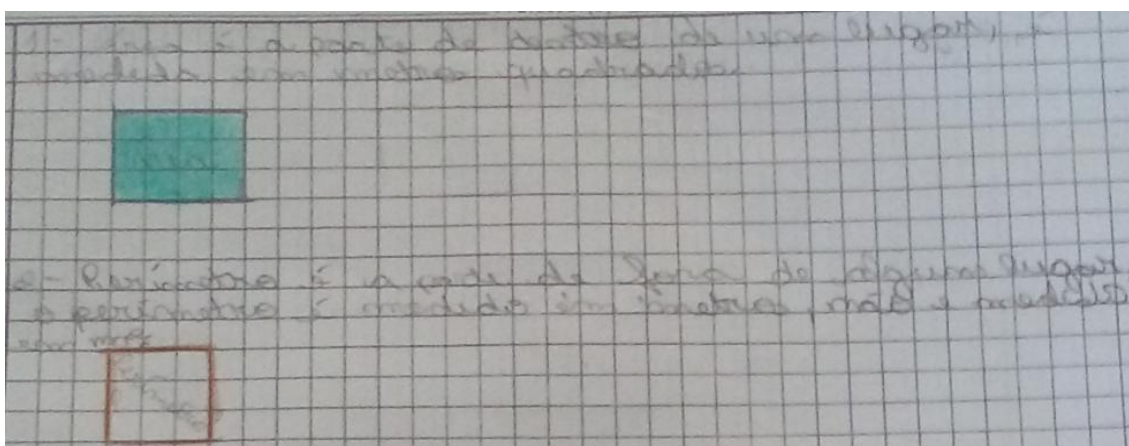 1- área é a parte de dentro de um lugar, é
medida em metros quadrados
área
2- Perímetro é a parte de fora de algum lugar
o perímetro é medido em metros, não é medido
em